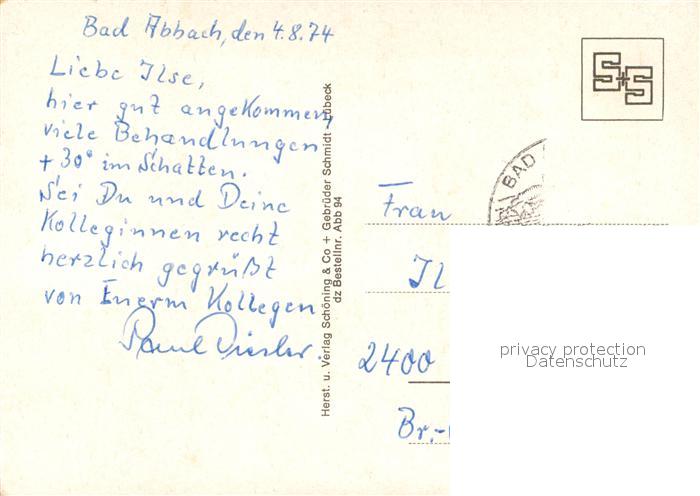 Bad Abbach, den 4.8.74
Liebe Ilse,
hier gut angekommen,
viele Behandlungen
+ 30° im Schatten.
Sei Du und Deine
Kolleginnen recht
herzlich gegrüßt
von Euerm Kollegen
Paul
Herst. u. Verlag Schöning & Co + Gebrüder Schmidt · Lübeck
dz Bestellnr. Abb 94
S+S
BAD
Frau
Il
2400
Br.-
privacy protection
Datenschutz